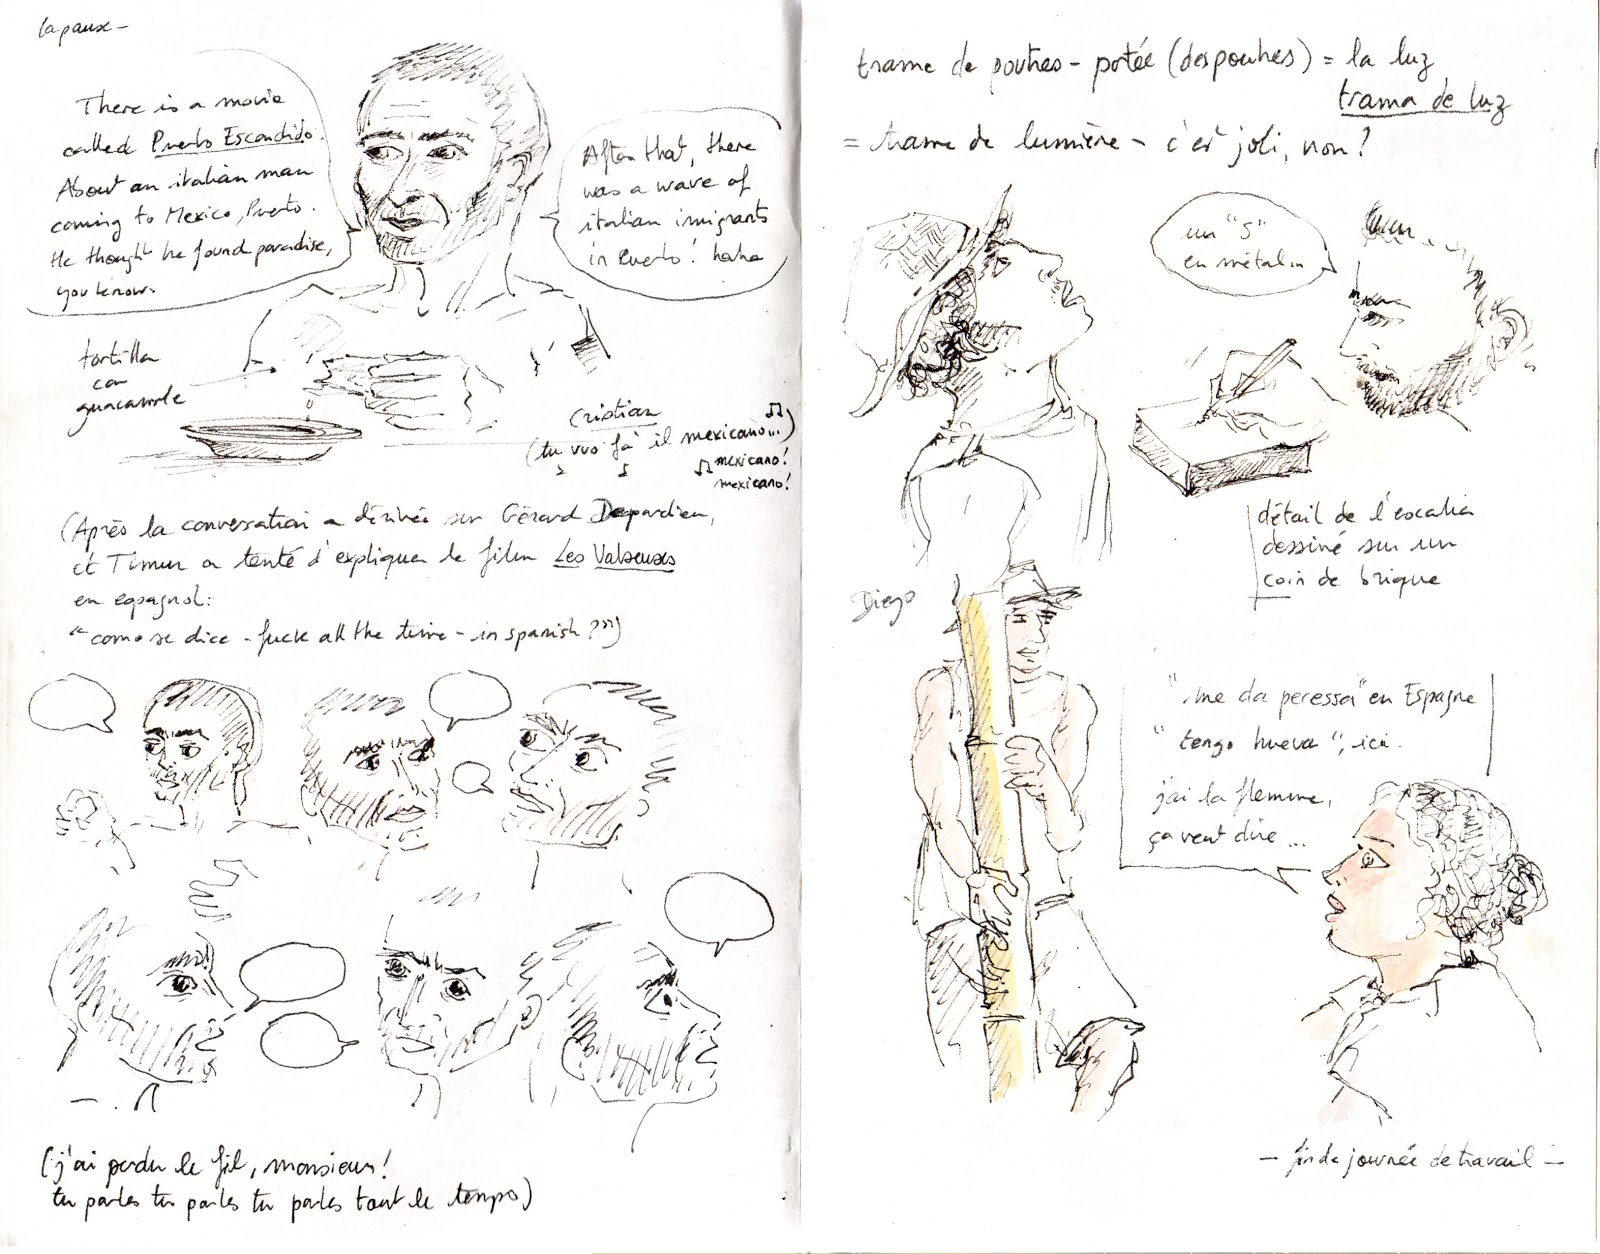 la pause —
There is a movie
called Puerto Escondido.
About an italian man
coming to Mexico, Puerto.
He thought he found paradise,
you know.
After that, there
was a wave of
italian imigrants
in Puerto! haha
tortilla
con
guacamole
Cristian
(tu vuo fà il mexicano...)
mexicano!
mexicano!
(Après la conversation a dérivée sur Gérard Depardieu,
et Timur a tenté d'expliquer le film Les Valseuses
en espagnol:
"como se dice - fuck all the time - in spanish?")
(j'ai perdu le fil, monsieur!
tu parles tu parles tu parles tout le temps)
trame de poutres - portée (des poutres) = la luz
trama de luz
= trame de lumière - c'est joli, non?
un "S"
en métal
détail de l'escalier
dessiné sur un
coin de brique
Diego
"me da peressa" en Espagne
"tengo hueva", ici.
j'ai la flemme,
ça veut dire ...
— fin de journée de travail —